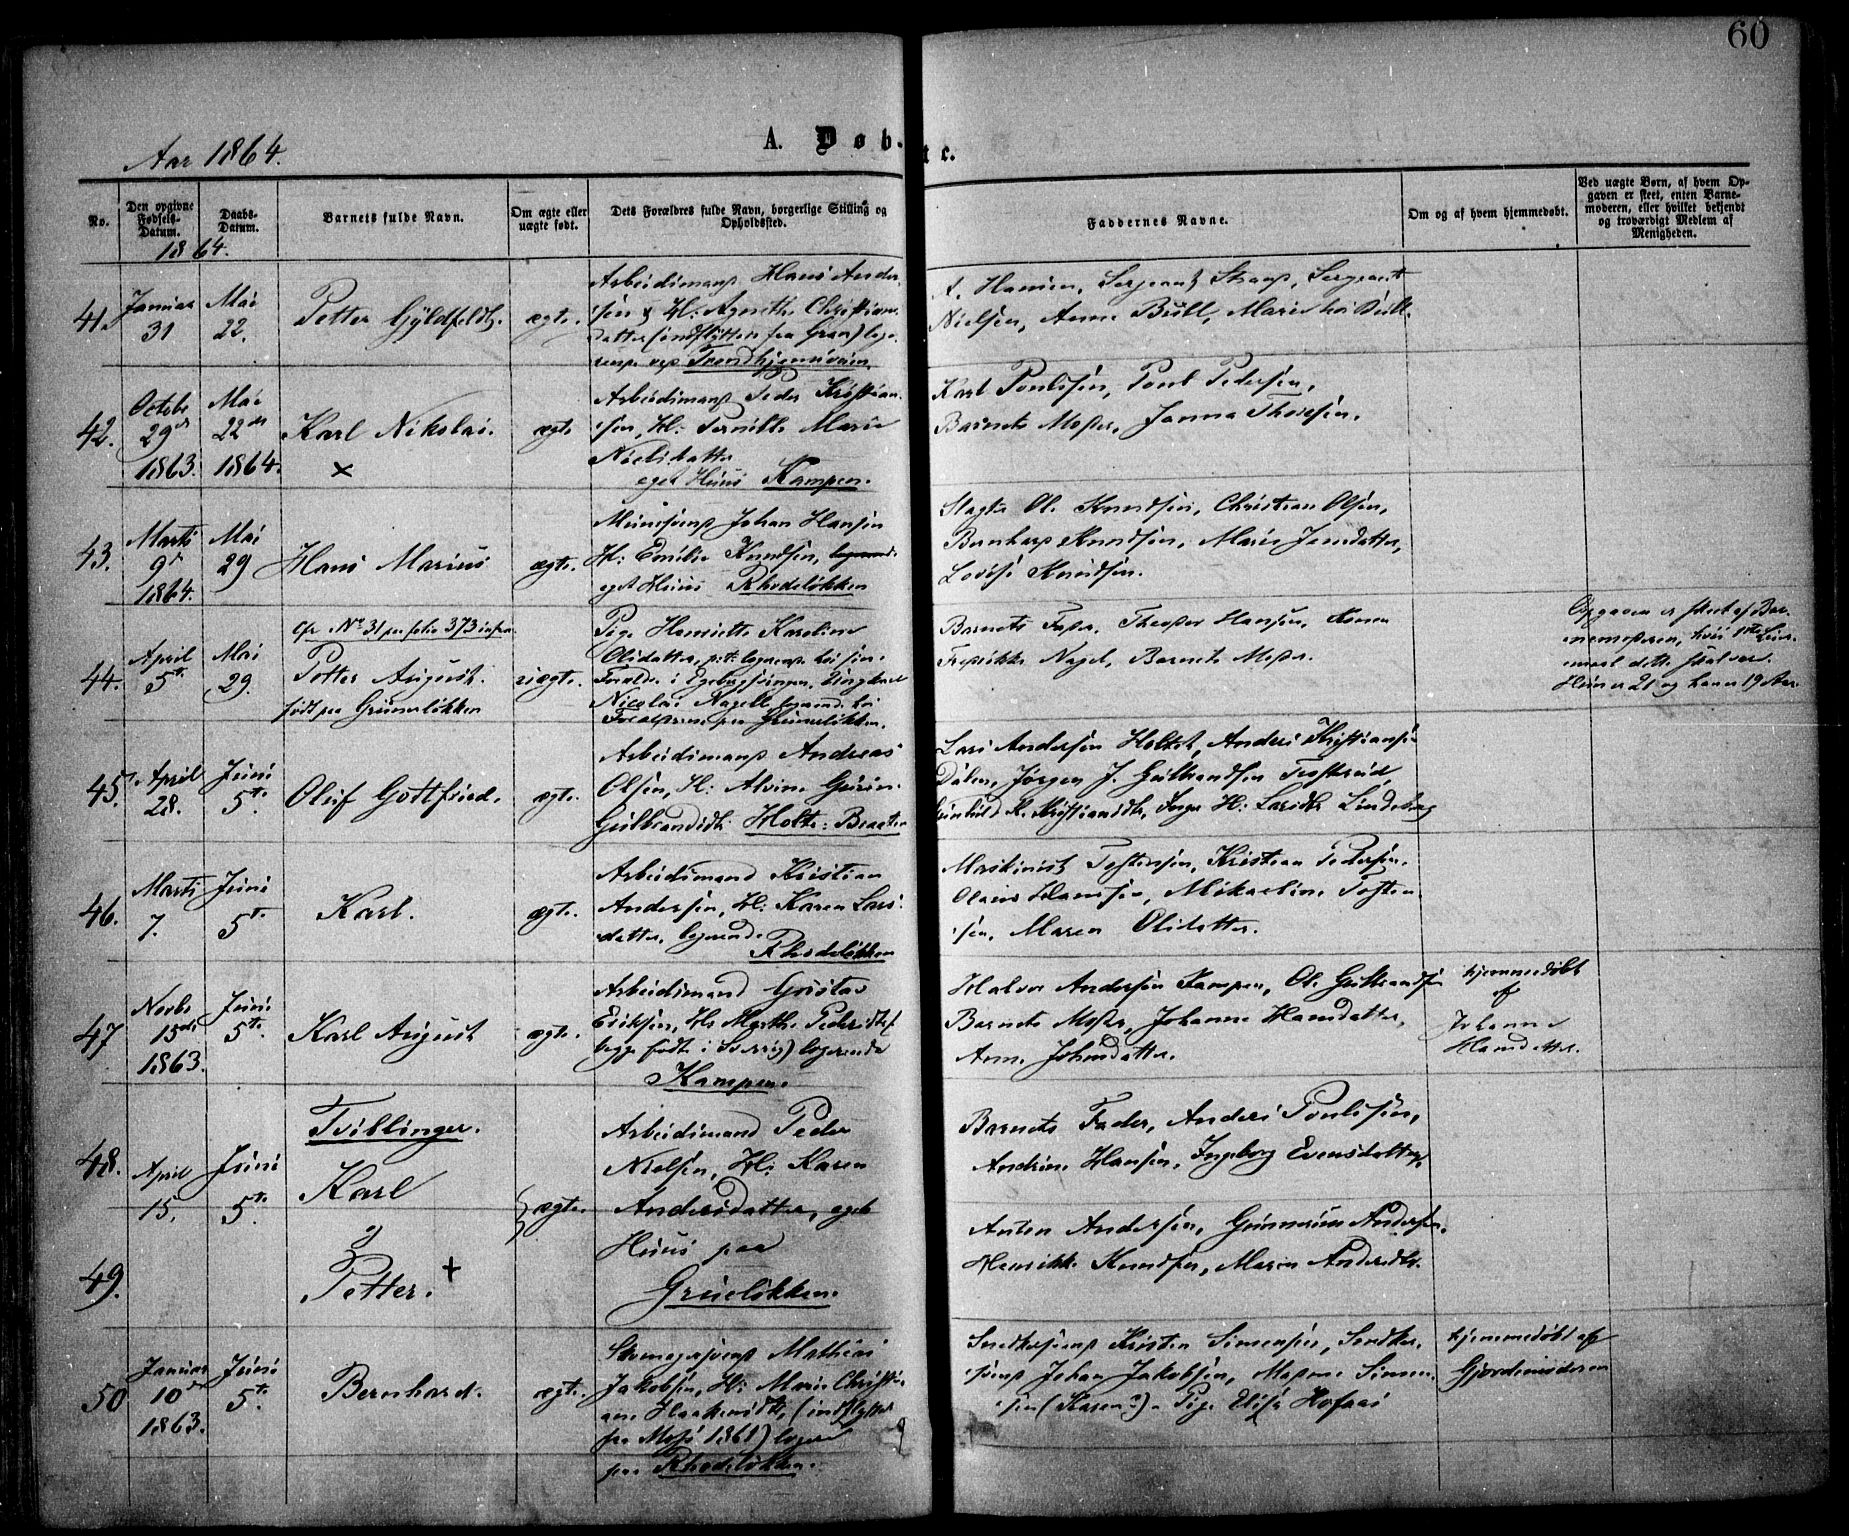 60
Aar 1864.
A. Døbte.
No.
Den opgivne Fødsels-Datum.
Daabs-Datum.
Barnets fulde Navn.
Om ægte eller uægte født.
Dets Forældres fulde Navn, borgerlige Stilling og Opholdssted.
Faddernes Navne.
Om og af hvem hjemmedøbt.
Ved uægte Børn, af hvem Op-
gaven er skeet, enten Barne-
moderen, eller hvilket bekjendt
og troværdigt Medlem af
Menigheden.
1864.
41. Januar 31 Mai 22. Petter Gyldfeldt. ægte.
Arbeidsmand Hans Ander-
sen & H: Agnethe Christians-
datter (indflyttede fra Gran) loge-
rende ved Trondhjemsveien.
A. Hansen, Sergeant Strand, Sergeant
Nielsen, Anne Bull, Marie Bull.
42. Octobr 29de 1863. Mai 22de 1864. Karl Nikolai. × ægte
Arbeidsmand Peder Kristian-
sen, H: Pernille Marie
Nielsdatter
eget Huus Kampen.
Karl Poulsen, Poul Pedersen,
Barnets Moder, Janna Thoresen.
43. Marts 9de 1864. Mai 29 Hans Marius ægte.
Muursvend Johan Hansen
H: Emilie Knudsen, logerende
eget Huus Rhodeløkken
Slagter Ole Knudsen, Christian Olsen,
Bernhard Knudsen, Maren Jensdatter,
Lovise Knudsen.
44. April 5te Mai 29.
cfr No 31 paa folio 373 infra.
Petter August.
født paa Grünerløkken
uægte.
Pige Henriette Karoline
Olsdatter, p.t. logerende hos sine
Forældre i Egebergsvingen, Ungkarl
Nicolai Nagell logerende hos
Forældrene paa Grünerløkken.
Barnets Fader, Theodor Hansen,
Fredrikke Nagel, Barnets Moder.
Opgaven er skeet af Bar-
nemoderen, hvis 1ste Leier-
maal dette skal være.
Hun er 21 og han er 19 Aar.
45. April 28. Juni 5te Oluf Gottfried. ægte.
Arbeidsmand Andreas
Olsen, H: Alvine Gurine
Gulbrandsdtr. Holte-Braaten
Lars Andersen Holtet, Anders Kristiansen
Dalen, Jørgen J. Gulbrandsen Trosterud,
Gunhild K. Kristiansdtr, Inger H: Larsdtr Lindeberg
46. Marts 7. Juni 5te Karl. ægte.
Arbeidsmand Kristian
Andersen, H: Karen Lars-
datter, logerende
Rhodeløkken
Maskinist Tostensen, Kristian Pedersen,
Olaus Hansen, Mikaeline Tosten-
sen, Maren Olsdatter.
47 Novbr 15de 1863. Juni 5te Karl August ægte.
Arbeidsmand Gustav
Eriksen, H: Marthe Pedersdtr (
begge født i Sverig) logerende
Kampen.
Halvor Andersen Kampen, Ole Gulbrandsen
Barnets Moder, Johanne Hansdatter,
Anne Johnsdatter.
hjemmedøbt
af
Johanne
Hansdatter.
Tvillinger.
48. April 15. Juni 5te Karl
og
49. Petter. †
ægte.
Arbeidsmand Peder
Nielsen, H: Karen
Andersdatter, eget
Huus paa
Grüeløkken.
Barnets Fader, Anders Poulsen,
Andrine Hansen, Ingeborg Evensdatter,
Anton Andersen, Gunerius Andersen,
Henrikke Knudsen, Maren Andersdtr.
50 Januar 10de 1863. Juni 5te Bernhard. ægte.
Skomagersvend Mathias
Jakobsen, H: Marie Christi-
ane Haakensdtr, (indflyttet
fra Moss 1861) logerer
paa Rhodeløkken.
Snedkersvend Kristen Simensen, Snedker-
svend Johan Jakobsen, Madme Simen-
sen (Karen?). Pige Elise Hofaas
hjemmedøbt af
Gjordemoderen